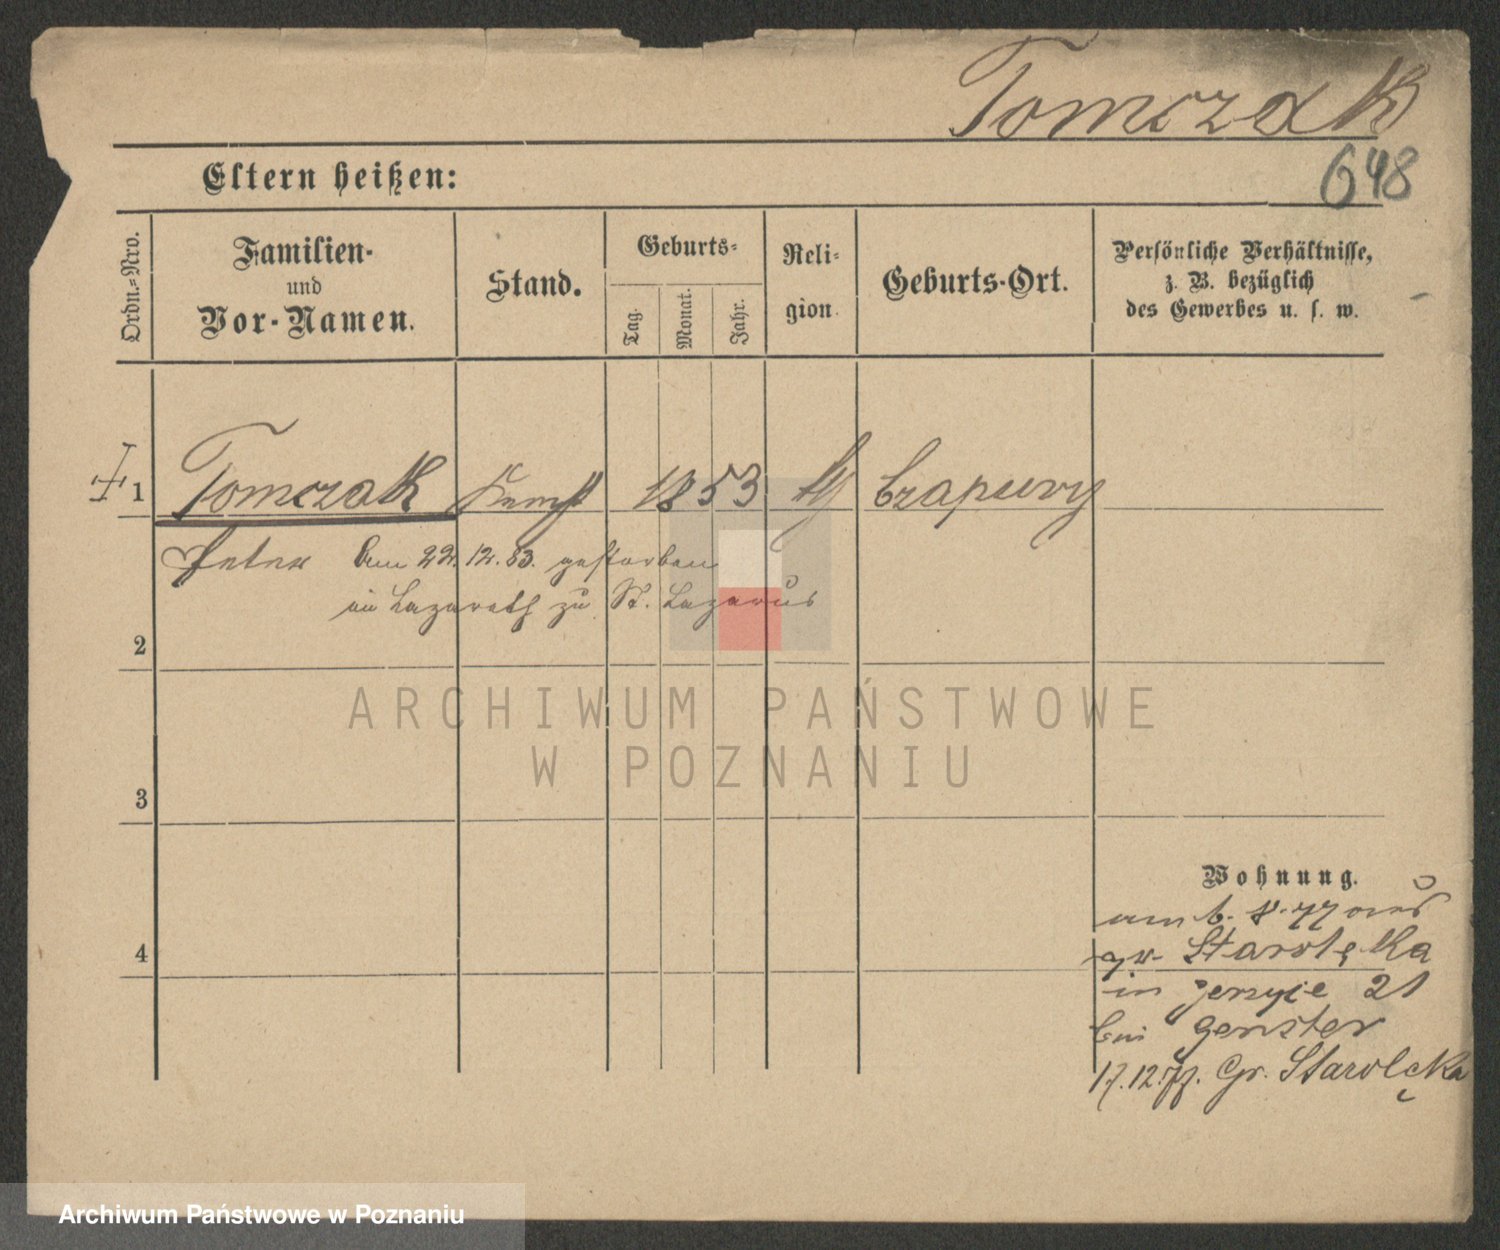 Tomczak
648
Eltern heißen:
Ordn.=Nro.
Familien-
und
Vor-Namen.
Stand.
Geburts=
Tag.
Monat.
Jahr.
Reli=
gion.
Geburts-Ort.
Persönliche Verhältnisse,
z. B. bezüglich
des Gewerbes u. s. w.
1 Tomczak 1853 Czapury
Peter am 22.12.83. gestorben
im Lazareth zu St. Lazarus
2
ARCHIWUM PAŃSTWOWE
W POZNANIU
3
Wohnung.
am 6. 8. 77 aus
gr Starołęka
4
in Jersyce 21
bei Genster
17.12.77. Gr. Starolęka
Archiwum Państwowe w Poznaniu